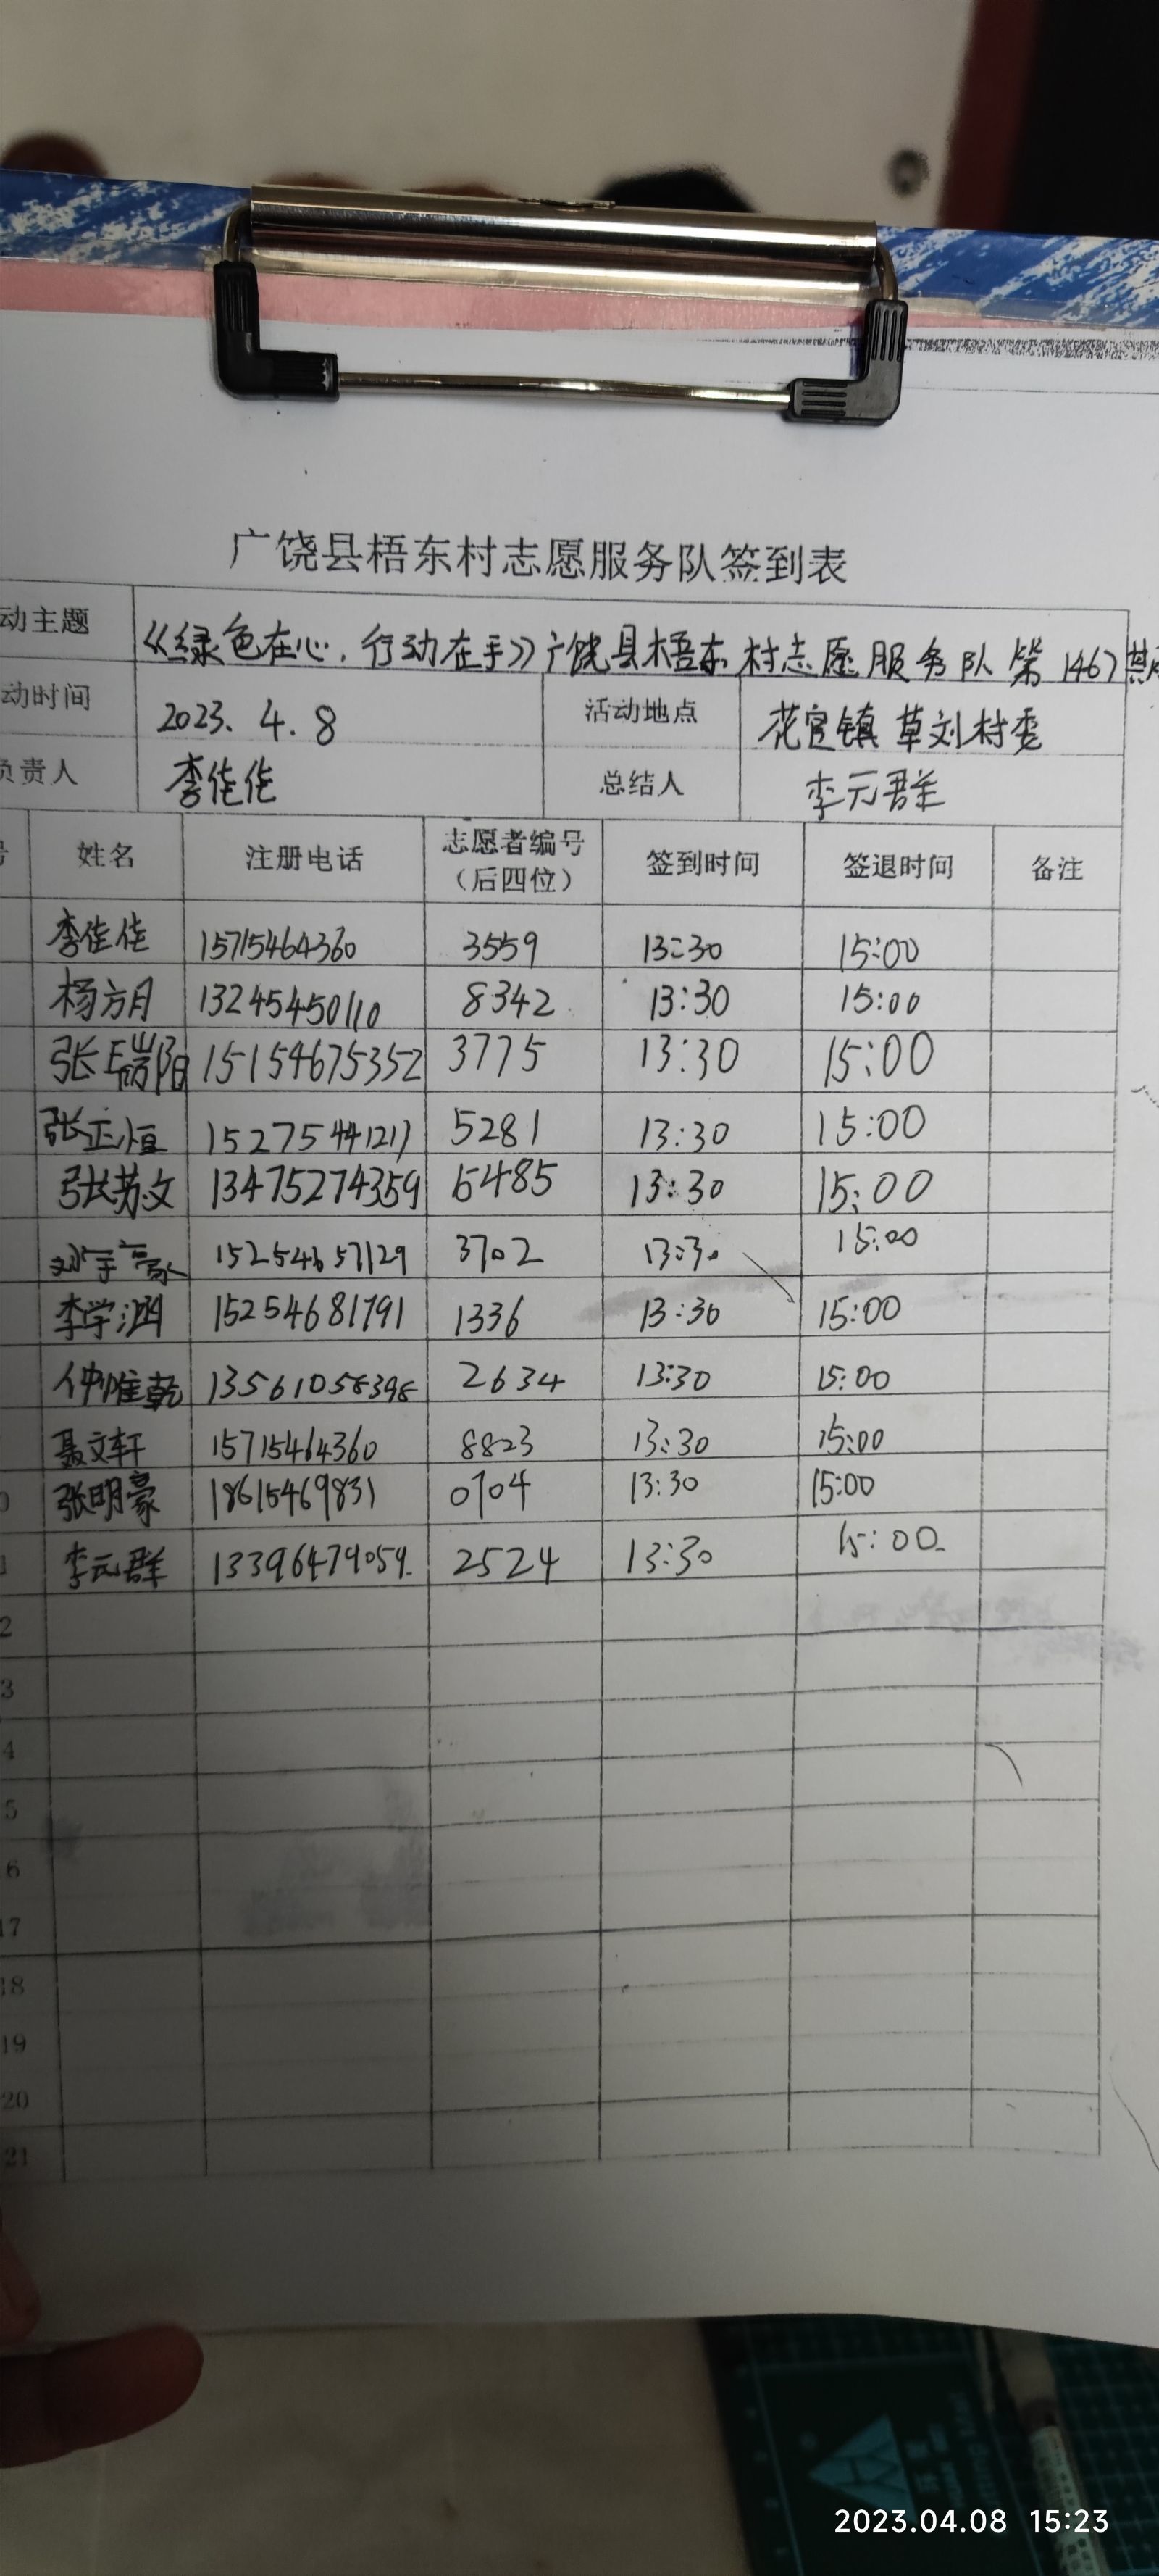 广饶县梧东村志愿服务队签到表
动主题 《绿色在心，行动在手》广饶县梧东村志愿服务队第1467
动时间 2023.4.8 活动地点 花官镇草刘村委
负责人 李佳佳 总结人 李元群
号 姓名 注册电话 志愿者编号（后四位） 签到时间 签退时间 备注
李佳佳 15715464360 3559 13:30 15:00
杨方月 13245450110 8342 13:30 15:00
张瑞阳 15154675352 3775 13:30 15:00
张正恒 15275441217 5281 13:30 15:00
张苏文 13475274359 6485 13:30 15:00
刘宇豪 15254657129 3702 13:30 15:00
李学涵 15254681791 1336 13:30 15:00
仲惟乾 13561058398 2634 13:30 15:00
聂文轩 15715464360 8823 13:30 15:00
0 张明豪 18615469831 0704 13:30 15:00
1 李元群 13396479059 2524 13:30 15:00
2
3
4
5
6
17
18
19
20
21
2023.04.08 15:23